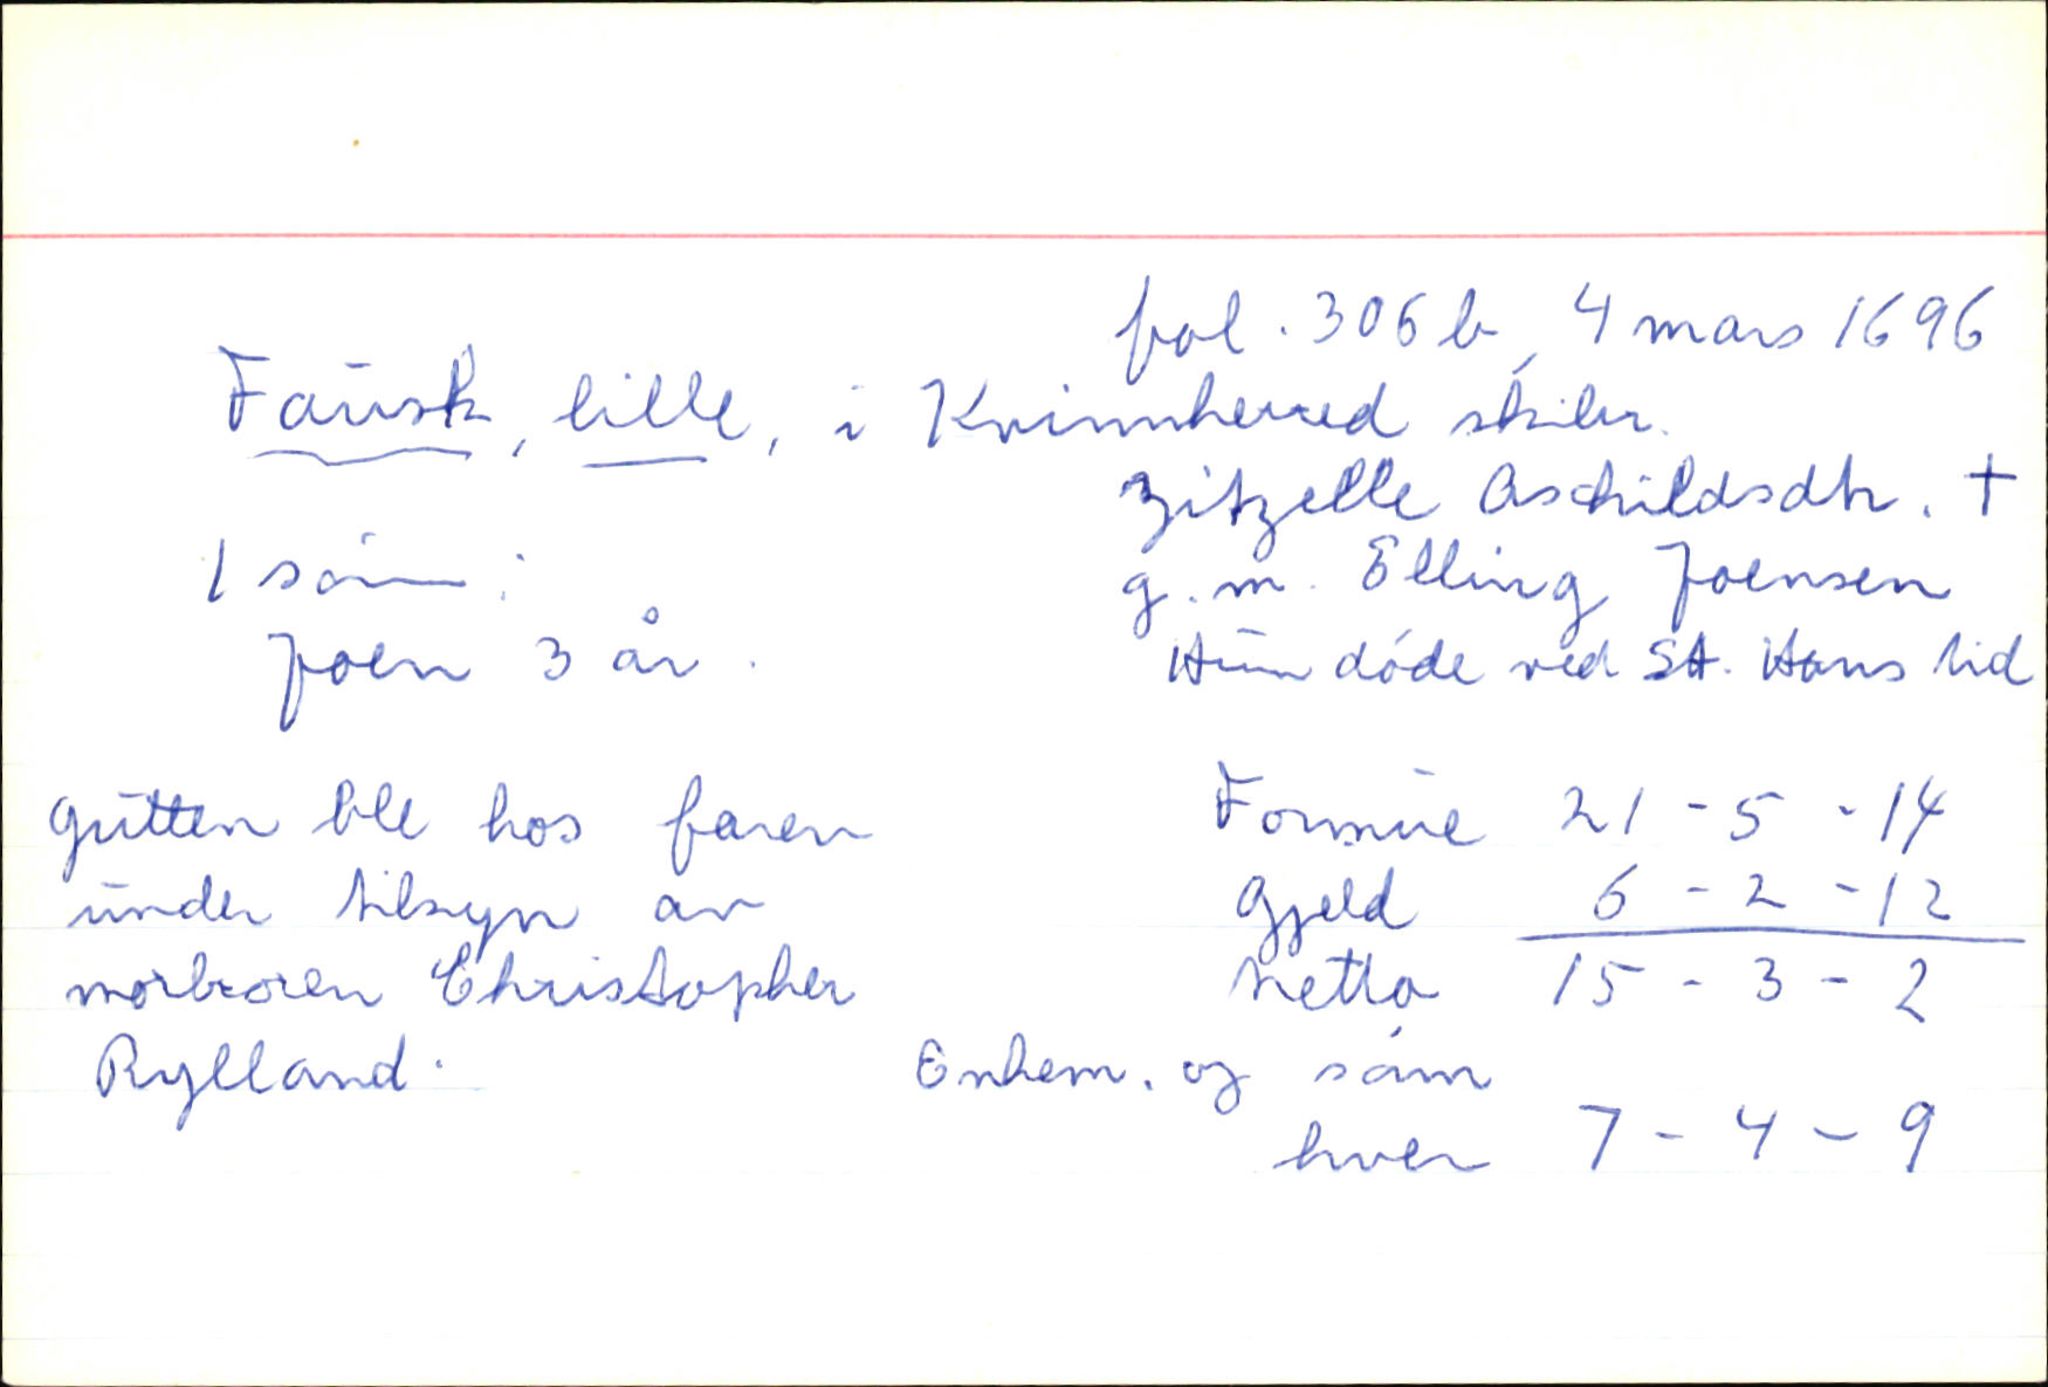 fol. 306 b, 4 mars 1696
Fausk, lille, i Kvinnherred skibr.
Zitzelle Aschildsdtr. †
1 sønn:
g.m. Elling Joensen
Joen 3 år.
Hun døde ved St. Hans tid
Gutten ble hos faren
Formue 21 - 5 - 14
under tilsyn av
Gjeld 6 - 2 - 12
morbroren Christopher
Netto 15 - 3 - 2
Rylland.
Enkem. og sønn
hver 7 - 4 - 9